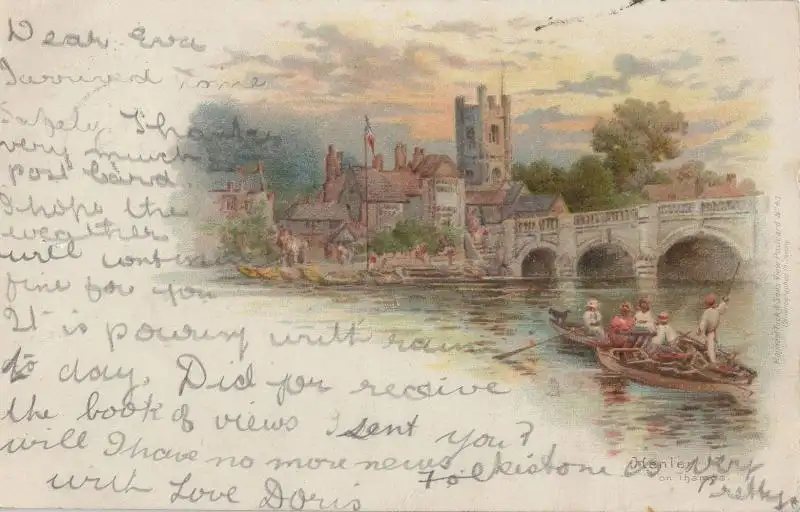 Dear Eva
I arrived home
Safely, Thanks
very much
post card.
I hope the
weather
will continue
fine for you
It is pouring with rain
to day, Did for receive
the book of views I sent you?
will I have no more news
with Love Doris
Folkistone is very
Pretty.
Henley
on Thames.
Raphael Tuck & Sons View Postcard Nº 43